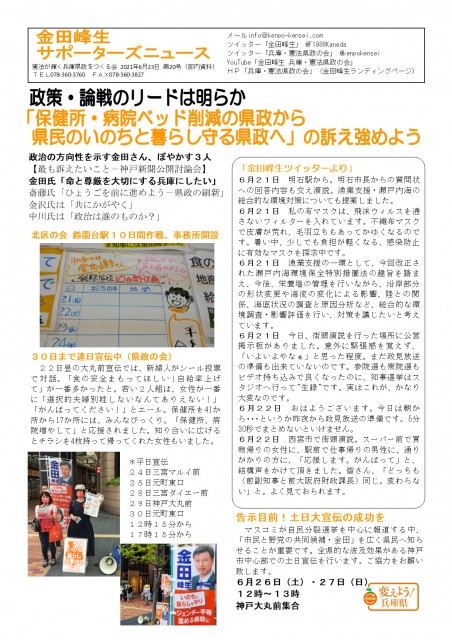 金田峰生
サポーターズニュース
憲法が輝く兵庫県政をつくる会 2021年6月23日 第20号(部内資料)
TEL078-360-3760 FAX078-360-3827
メールinfo@kenpo-kensei.com
ツイッター「金田峰生」 @F1988Kaneda
ツイッター「兵庫・憲法県政の会」 @kenpokensei
YouTube「金田峰生 兵庫・憲法県政の会」
HP「兵庫・憲法県政の会」(金田峰生ランディングページ)
政策・論戦のリードは明らか
「保健所・病院ベッド削減の県政から
県民のいのちと暮らし守る県政へ」の訴え強めよう
政治の方向性を示す金田さん、ぼやかす3人
【最も訴えたいこと-神戸新聞公開討論会】
金田氏「命と尊厳を大切にする兵庫にしたい」
斎藤氏「ひょうごを前に進めよう-県政の刷新」
金沢氏は「共にかがやく」
中川氏は「政治は誰のものか?」
北区の会 鈴蘭台駅10日間作戦、事務所開設
30日まで連日宣伝中(県政の会)
22日昼の大丸前宣伝では、新婦人がシール投票
で対話。「食の安全まもってほしい!自給率上げ
て」が一番多かったと。若い2人組は、女性が一番
に「選択的夫婦別姓しないなんてありえない!」
「がんばってください!」とエール。保健所を41か
所から17か所には、みんなびっくり。「保健所、病
院増やして!」と応援されました。知り合いに広げる
とチラシを4枚持って帰ってくれた女性もいました。
*平日宣伝
24日三宮マルイ前
25日元町東口
28日三宮ダイエー前
29日神戸大丸前
30日元町東口
12時15分から
17時15分から
「金田峰生ツイッターより」
6月21日 明石駅から。明石市長からの質問状
への回答内容も交え演説。漁業支援・瀬戸内海の
総合的な環境対策についても提案しました。
6月21日 私の布マスクは、飛沫ウィルスを通
さないフィルターを入れています。不織布マスク
で皮膚が荒れ、毛羽立ちもあってかゆくなるので
す。暑い中、少しでも負担が軽くなる、感染防止
に有効なマスクを探求中です。
6月21日 漁業支援の一環として、今回改正さ
れた瀬戸内海環境保全特別措置法の趣旨を踏ま
え、今後、栄養塩の管理を行いながら、沿岸部分
の形状変更や海流の変化による影響、陸との関
係、海底状況の調査と原因分析など、総合的な環
境調査・影響評価を行い、対策を講じたいと考え
ています。
6月21日 今日、街頭演説を行った場所に公営
掲示板がありました。意外に緊張感を覚えず、
「いよいよやなぁ」と思った程度。まだ政見放送
の準備も出来ていないのです。参院選も衆院選も
ビデオ持ち込みで良くなったのに、知事選はスタ
ジオへ行って“生録”です。実はこれが、かなり
大変なのです。
6月22日 おはようございます。今日は朝か
ら・・・というか昨夜から政見放送の準備です。5分
30秒でまとめないといけません。
6月22日 西宮市で街頭演説。スーパー前で買
物帰りの女性に、駅前で仕事帰りの男性に、通り
がかりの方に、「応援します。がんばって」と、
結構声をかけて頂きました。皆さん、「どっちも
(前副知事と前大阪府財政課長)同じ。変わらな
い」と。よく見ておられます。
告示目前!土日大宣伝の成功を
マスコミが自民分裂選挙を中心に報道する中、
「市民と野党の共同候補・金田」を広く県民へ知ら
せることが重要です。全県的な波及効果がある神戸
市中心部での土日宣伝を行います。ご協力をお願い
致します。
6月26日(土)・27日(日)
12時~13時
神戸大丸前集合
変えよう!
兵庫県